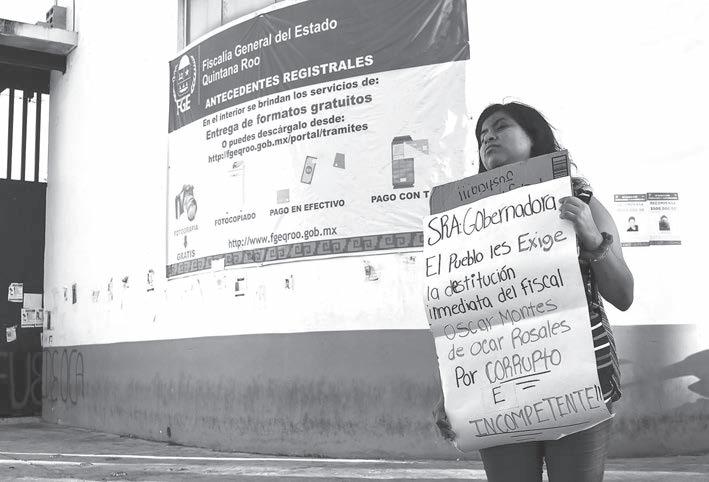 Fiscalía General del Estado
Quintana Roo
FGE
ANTECEDENTES REGISTRALES
En el interior se brindan los servicios de:
Entrega de formatos gratuitos
O puedes descárgalo desde:
http://fgeqroo.gob.mx/portal/tramites
FOTOGRAFIA
GRATIS
FOTOCOPIADO
PAGO EN EFECTIVO
PAGO CON T
http://www.fgeqroo.gob.mx
SRA: GObernadora
El Pueblo les Exige
la destitución
inmediata del fiscal
Oscar Montes
de ocar Rosales
Por CORRUPTO
E
INCOMPETENTE!!
RECOMPENSA